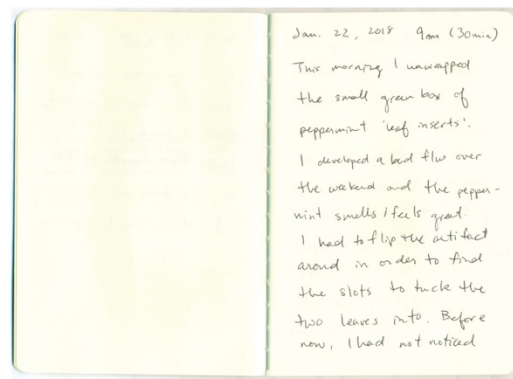 Jan. 22, 2018 9am (30min)
This morning I unwrapped
the small green box of
peppermint 'leaf inserts'.
I developed a bad flu over
the weekend and the pepper-
mint smells/feels great.
I had to flip the artifact
around in order to find
the slots to tuck the
two leaves into. Before
now, I had not noticed